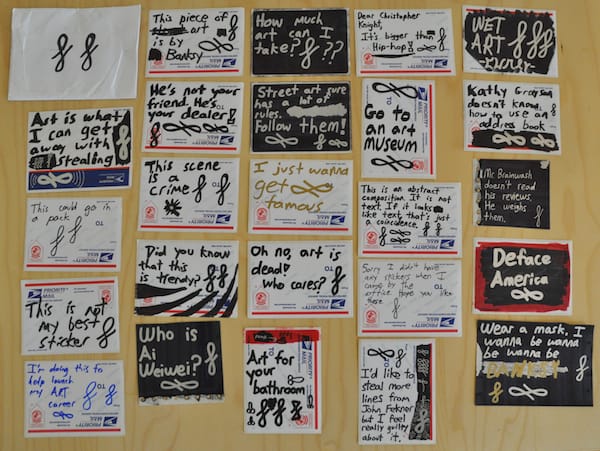 This piece of
art
is by
Banksy
How much
art can I
take???
Dear Christopher
Knight,
It's bigger than
Hip-hop!
WET
ART
Art is what
I can get
away with
stealing
He's not your
friend. He's
your dealer!
Street art sure
has a lot of
rules.
Follow them!
Go to
an art
museum
Kathy Grayson
doesn't know
how to use an
address book
This could go in
a pack
This scene
is a
crime
I just wanna
get
famous
This is an abstract
composition. It is not
text. If it looks
like text, that's just
a coincidence.
Mr Brainwash
doesn't read
his reviews.
He weighs
them.
This is not
my best
sticker
Did you know
that this
is trendy?
Oh no, art is
dead!
who cares?
Sorry I didn't have
any stickers when I
came by the
office. Hope you like
these
Deface
America
I'm doing this to
help launch
my ART
career
Who is
Ai
Weiwei?
Art for
your
bathroom
I'd like to
steal more
lines from
John Fekner
but I feel
really guilty
about it.
Wear a mask. I
wanna be wanna
be wanna be
BANKSY
PRIORITY
MAIL
TO